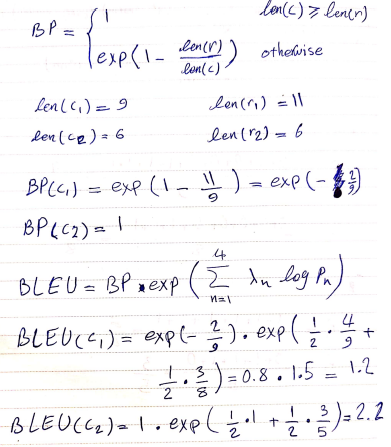 BP = { 1 len(c) ⩾ len(r)
exp(1 - len(r)/len(c)) otherwise
len(c₁) = 9 len(r₁) = 11
len(c₂) = 6 len(r₂) = 6
BP(c₁) = exp(1 - 11/9) = exp(- 2/9)
BP(c₂) = 1
BLEU = BP • exp(∑ₙ₌₁⁴ λₙ log Pₙ)
BLEU(c₁) = exp(- 2/9) · exp(1/2 · 4/9 +
1/2 · 3/8) = 0.8 · 1.5 = 1.2
BLEU(c₂) = 1 · exp(1/2 · 1 + 1/2 · 3/5) = 2.2